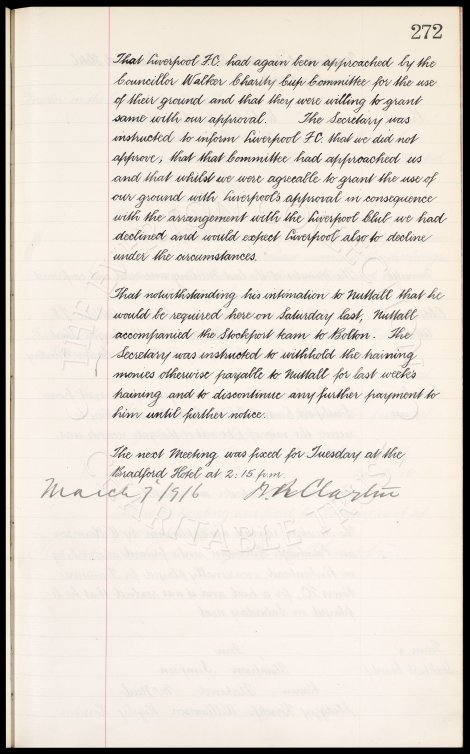 272
That Liverpool F.C. had again been approached by the
Councillor Walker Charity Cup Committee for the use
of their ground and that they were willing to grant
same with our approval. The Secretary was
instructed to inform Liverpool F.C. that we did not
approve, that that Committee had approached us
and that whilst we were agreeable to grant the use of
our ground with Liverpool's approval in consequence
with the arrangement with the Liverpool Club we had
declined and would expect Liverpool also to decline
under the circumstances.
That notwithstanding his intimation to Nuttall that he
would be required here on Saturday last, Nuttall
accompanied the Stockport team to Bolton. The
Secretary was instructed to withhold the training
monies otherwise payable to Nuttall for last week's
training and to discontinue any further payment to
him until further notice.
The next Meeting was fixed for Tuesday at the
Bradford Hotel at 2.15 p.m.
March 7 1916